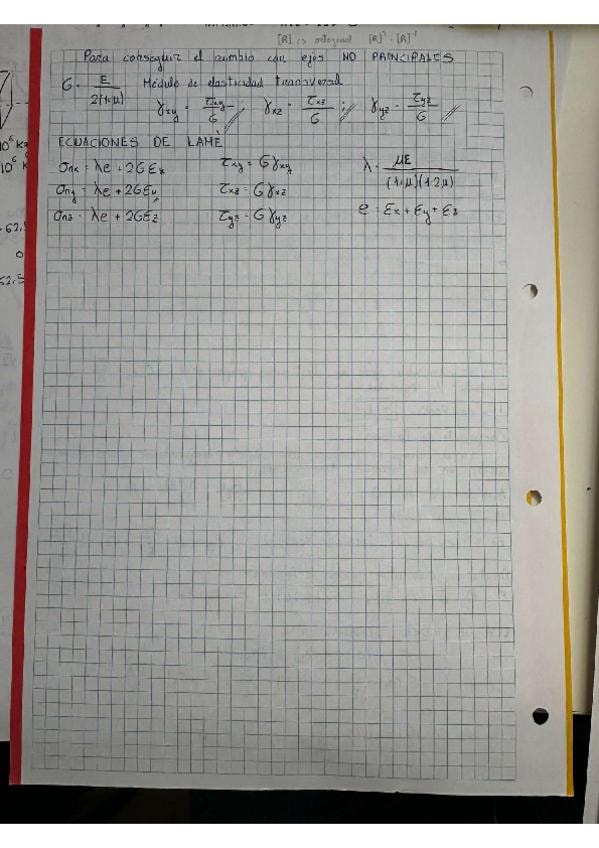 [R] es ortogonal [R]ᵀ = [R]⁻¹
Para conseguir el cambio con ejes NO PRINCIPALES
G = E / 2(1+μ) Módulo de elasticidad transversal
γxy = τxy / G ; γxz = τxz / G ; γyz = τyz / G
ECUACIONES DE LAMÉ
σnx = λe + 2Gεx τxy = Gγxy λ = μE / (1+μ)(1-2μ)
σny = λe + 2Gεy τxz = Gγxz
σnz = λe + 2Gεz τyz = Gγyz e = εx + εy + εz